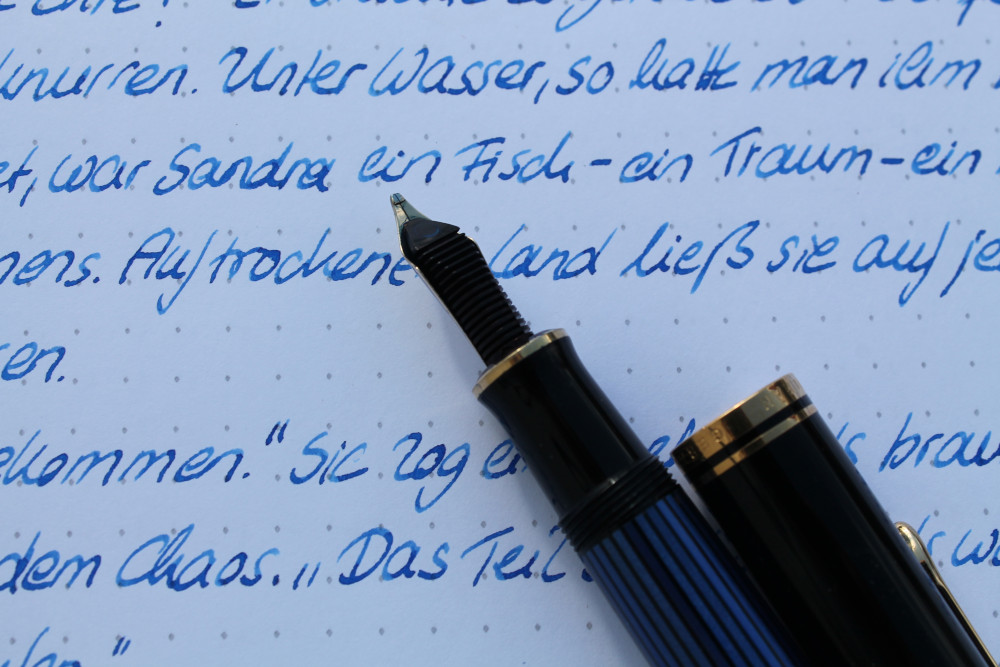 knurren. Unter Wasser, so hatte man ihm
et, war Sandra ein Fisch – ein Traum – ein
nens. Auf trockene Land ließ sie auf je
en.
ekommen." Sie zog ei braun
dem Chaos. „Das Teil
"